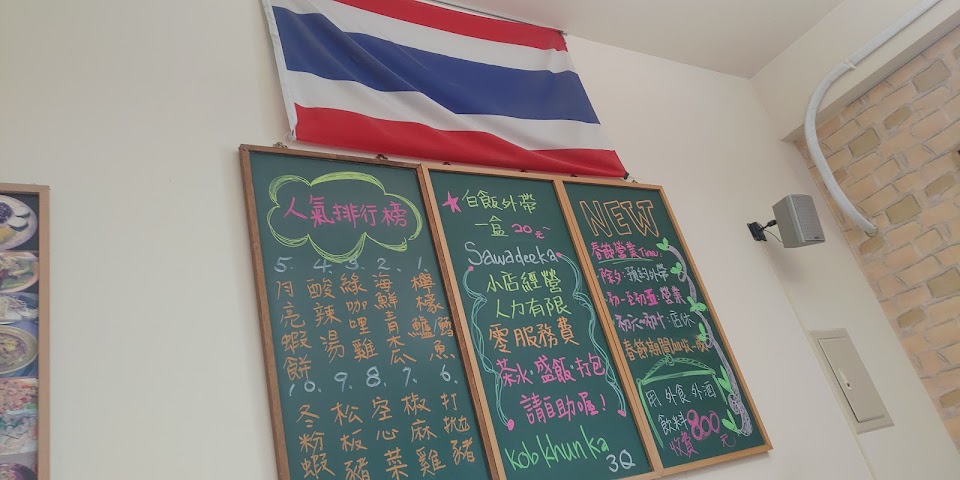 人氣排行榜
1. 檸檬鱸魚
2. 海鮮青木瓜
3. 綠咖哩雞
4. 酸辣湯
5. 月亮蝦餅
6. 打拋豬
7. 椒麻雞
8. 空心菜
9. 松板豬
10. 冬粉蝦
★白飯外帶
一盒20元
Sawadeeka
小店經營
人力有限
零服務費
茶水.盛飯.打包
請自助喔!
kob khun ka
3Q
NEW
春節營業Time
除夕:預約外帶
營業
店休
春節期間
外食.外酒
飲料
收費800元